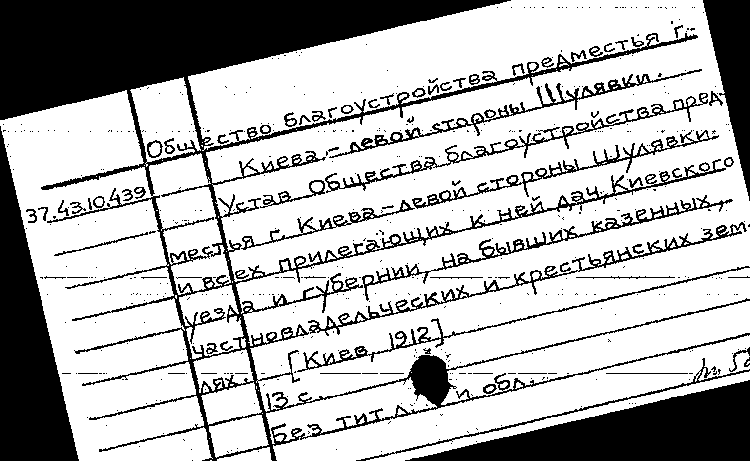 Общество благоустройства предместья г.
Киева, - левой стороны Шулявки.
37.43.10.439
Устав Общества благоустройства пред-
местья г. Киева - левой стороны Шулявки.
и всех прилегающих к ней дач, Киевского
уезда и губернии, на бывших казенных,
частновладельческих и крестьянских зем-
лях. [Киев, 1912].
13 с.
Без тит.л. и обл.